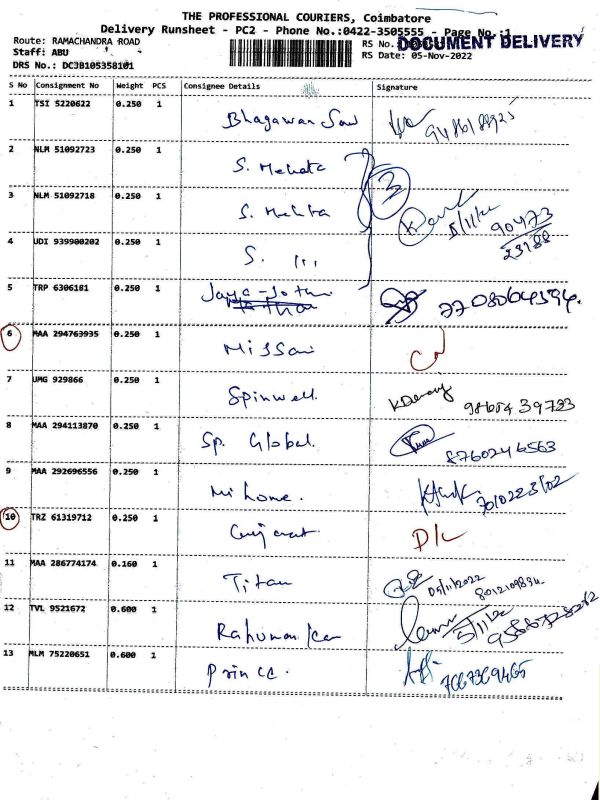 THE PROFESSIONAL COURIERS, Coimbatore
Delivery Runsheet - PC2 - Phone No.:0422-3505555 - Page No.:1
Route: RAMACHANDRA ROAD
RS No.
DOCUMENT DELIVERY
Staff: ABU
RS Date: 05-Nov-2022
DRS No.: DC3B105358101
S No Consignment No Weight PCS Consignee Details Signature
1 TSI 5220622 0.250 1
2 NLM 51092723 0.250 1 S. Mehata
3
3 NLM 51092718 0.250 1 S. Mehta 5/11/22 90473
23188
4 UDI 939900202 0.250 1 S. ,,,
5 TRP 6306181 0.250 1 Jaya-Jothi
6 MAA 294763935 0.250 1 Missani
7 UMG 929866 0.250 1 Spinwell.
8 MAA 294113870 0.250 1 Sp. Global. 8760246563
9 MAA 292696556 0.250 1 Mi home.
10 TRZ 61319712 0.250 1 Gujarat D/L
11 MAA 286774174 0.160 1 Titan 05/11/2022
12 TVL 9521672 0.600 1 5/11/22
13 MLM 75220651 0.600 1 Prince. 7667369465